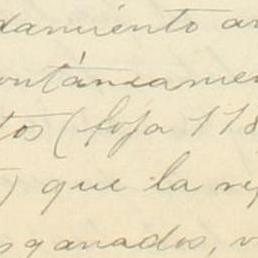 damiento a
ontáneamen
tos (foja 118
) que la re
sganados, v